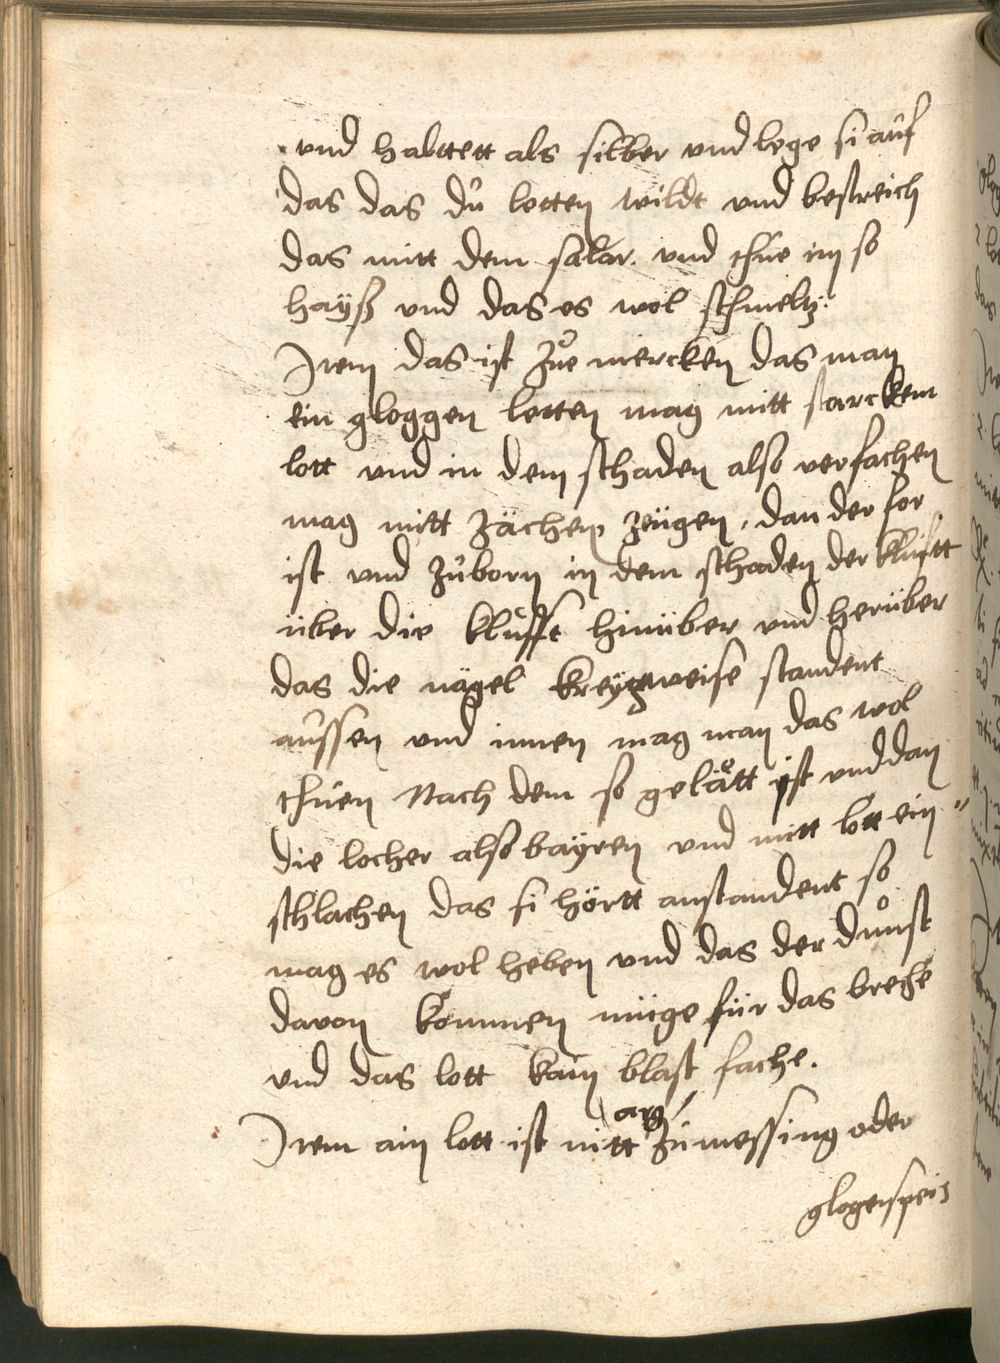 vnd halttett als silber vnd lege si auf
das das du lotten wildt vnd bestreich
das mitt dem salar. vnd thue im so
hayß vnd das es wol schmeltz:
Item das ist zue mercken das man
ein gloggen lotten mag mitt starckem
lott vnd in dem schaden also verfachen
mag mitt zächen zeügen, dan der for
ist vnd zuborn in dem schaden der klufft
über die klufft hinüber vnd herüber
das die nägel kreyzweise standent
aussen vnd innen mag man das wol
thuen Nach dem so gelått ist vnd dan
die locher also bayren vnd mitt lott ein"
schlachen das si hörtt anstandent so
mag es wol heben vnd das der dunst
davon kommen müge für das breche
vnd das lott kain blast fache.
Item ain lott ist mitt arg zu messing oder
glogenspeis